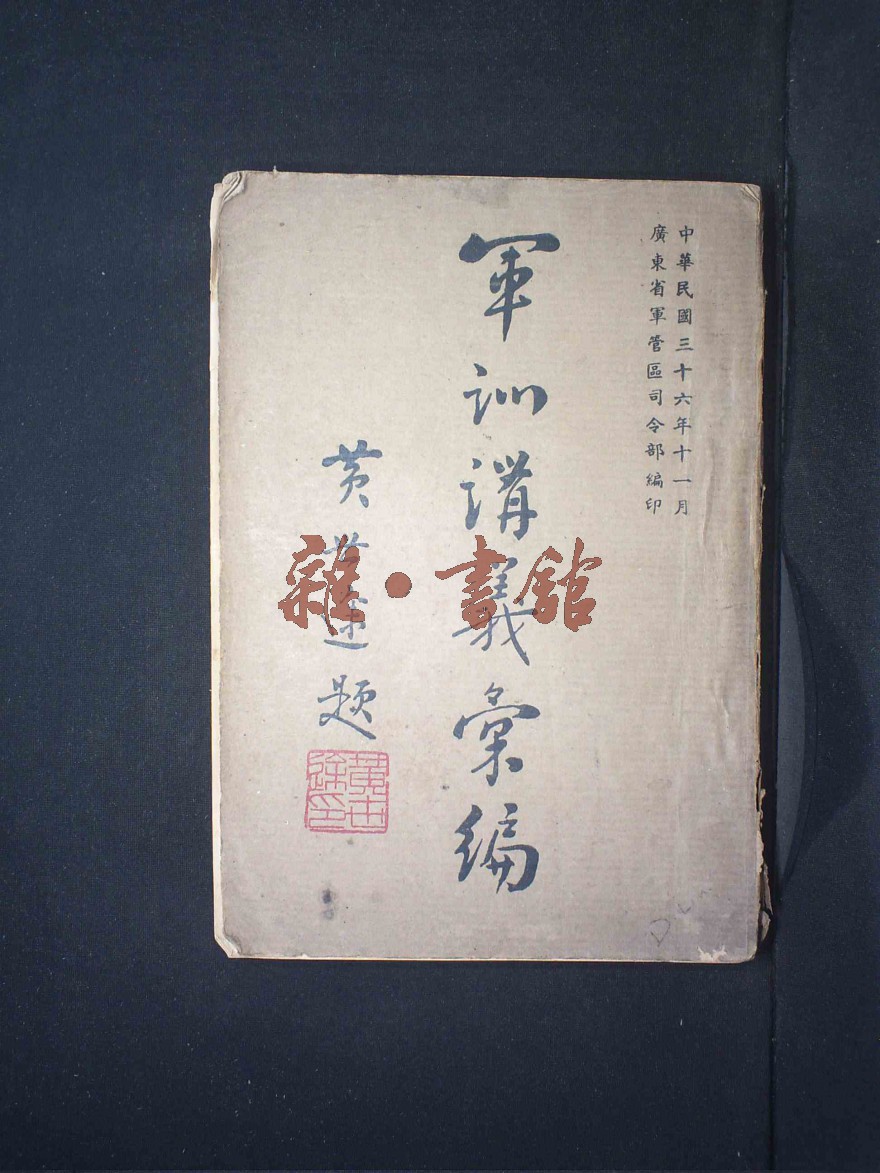 中華民國三十六年十一月
廣東省軍管區司令部編印
軍訓講義彙編
黄世途題
黃世途印
雜·書館